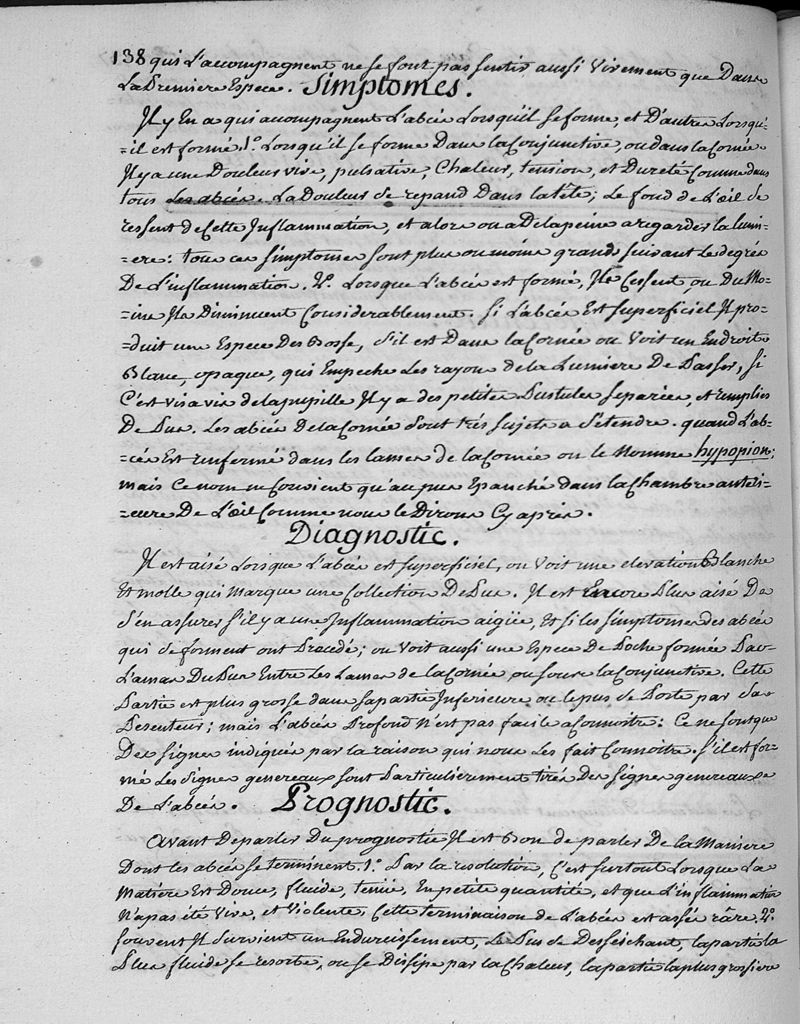 138 qui L'accompagnent ne se font pas sentir aussi vivement que Dans
La Premiere Espece. Simptomes.
Il y En a qui acompagnent L'abcés Lorsqu'il se forme, et D'autres Lorsqu'-
=il est formé. 1.° Lorsqu'il se forme Dans La Conjunctive, ou dans la Cornée
Il y a une Douleur vive, pulsative, Chaleur, tension, et Dureté Comme dans
tous Les abcés. La Douleur se repand Dans la tête; Le fond de L'œil se
ressent de Cette Inflammation, et alors on a De la peine a regarder la lumi-
=ere: tous ces simptomes sont plus ou moins grands suivant le degrés
De L'inflammation. 2.° Lorsque L'abcés est formé, Ils Cessent ou Du Mo-
=ins Ils Diminuent Considerablement. Si L'abcés Est superficiel Il pro-
=duit une Espece Des Bosse, s'il est Dans la Cornée on Voit un Endroit
Blanc, opaque, qui Empeche Les rayons de la Lumiere De Passer, si
C'est vis a vis de la pupille Il y a des petites Pustules separées, et remplies
De Pus. Les abcés De la Cornée sont trés sujets a s'etendre. quand L'ab-
=cés Est renfermé dans les lames de la Cornée on le Nomme hypopion;
mais Ce nom ne Convient qu'au pus Epanché dans la Chambre anteri-
=eure De L'œil Comme nous le Dirons Cy aprés.
Diagnostic.
Il est aisé Lorsque L'abcés est superficiel, on Voit une elevation Blanche
Et molle qui Marque une Collection De Pus. Il est Encore Plus aisé De
s'en assurer s'il y a une Inflammation aigüe, Et si les simptomes des abcés
qui se forment ont Precedé; on Voit aussi une Espece de Poche formée Par
L'amas Du Pus Entre Les Lames de la Cornée ou sous la Conjunctive. Cette
Partie est plus grosse dans sa partie Inferieure ou le pus se Porte par sa
Pesenteur; mais L'abcés Profond n'est pas facile a Connoitre: Ce ne sont que
Des signes indiqués par la raison qui nous Les fait Connoitre. s'il est for-
mé Les signes genereaux sont Particulierement tirés Des signes genereaux
De L'abcés. Prognostic.
Avant De parler Du prognostic Il est Bon de parler De la Maniere
Dont les abcés se terminent. 1.° Par la resolution, C'est surtout Lorsque La
Matiere Est Douce, fluide, tenüe, En petite quantité, et que L'inflammation
N'a pas été Vive, et Violente, Cette terminaison de L'abcés est assés râre. 2.°
souvent Il survient un Endurcissement, Le Pus se Desseichant, la partie la
Plus fluide se resorbe, ou se Dissipe par la Chaleur, la partie la plus grossiere